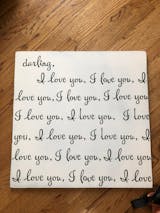 darling,
I love you, I love you, I
love you, I love you, I love you,
I love you, I love you, I love
you, I love you, I love you, I
love you, I love you, I love you,
I love you, I love you, I love